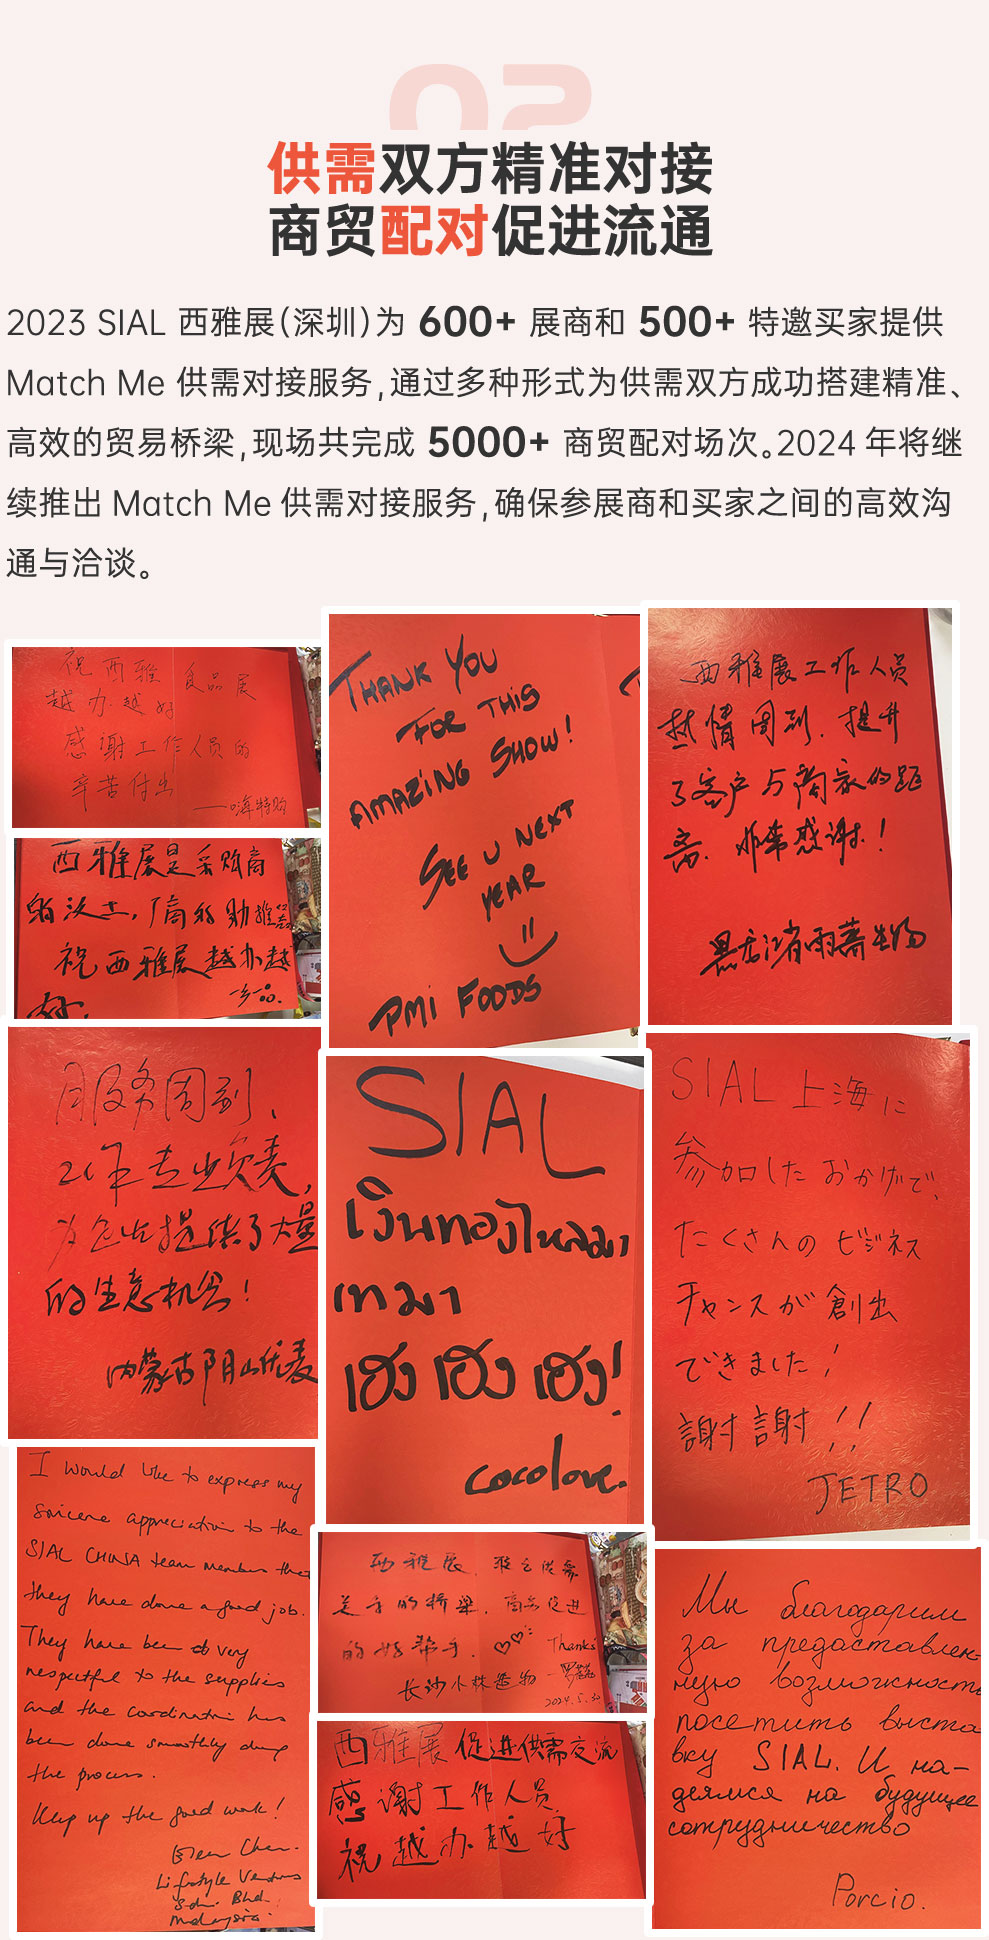 02
供需双方精准对接
商贸配对促进流通
2023 SIAL 西雅展(深圳)为 600+ 展商和 500+ 特邀买家提供
Match Me 供需对接服务,通过多种形式为供需双方成功搭建精准、
高效的贸易桥梁,现场共完成 5000+ 商贸配对场次。2024 年将继
续推出 Match Me 供需对接服务,确保参展商和买家之间的高效沟
通与洽谈。
祝西雅食品展
越办越好
感谢工作人员的
辛苦付出
——嗨特购
西雅展是采购商
的沃土,厂商的助推器
祝西雅展越办越
好.
THANK YOU
FOR THIS
AMAZING SHOW!
SEE U NEXT
YEAR
PMI FOODS
西雅展工作人员
热情周到.提升
了客户与商家的距
离.非常感谢!
服务周到,
工作专业负责,
为企业提供了大量
的生意机会!
内蒙古阴山优麦
SIAL
เงินทองไหลมา
เทมา
เฮง เฮง เฮง!
cocolove.
SIAL 上海に
参加したおかげで、
たくさんのビジネス
チャンスが創出
できました!
謝謝!!
JETRO
I would like to express my
sincere appreciation to the
SIAL CHINA team members that
they have done a good job.
They have been very
respectful to the suppliers
and the coordination has
been done smoothly during
the process.
Keep up the good work!
Chen.
Lifestyle Ventures
Sdn. Bhd.
Malaysia.
西雅展,
的桥梁,商务促进
的好帮手.
Thanks
长沙小林造物
2024.5.30
西雅展促进供需交流
感谢工作人员
祝越办越好
Мы благодарим
за предоставлен-
ную возможность
посетить выста
вку SIAL. И на-
деямся на будущее
сотрудничество
Porcio.